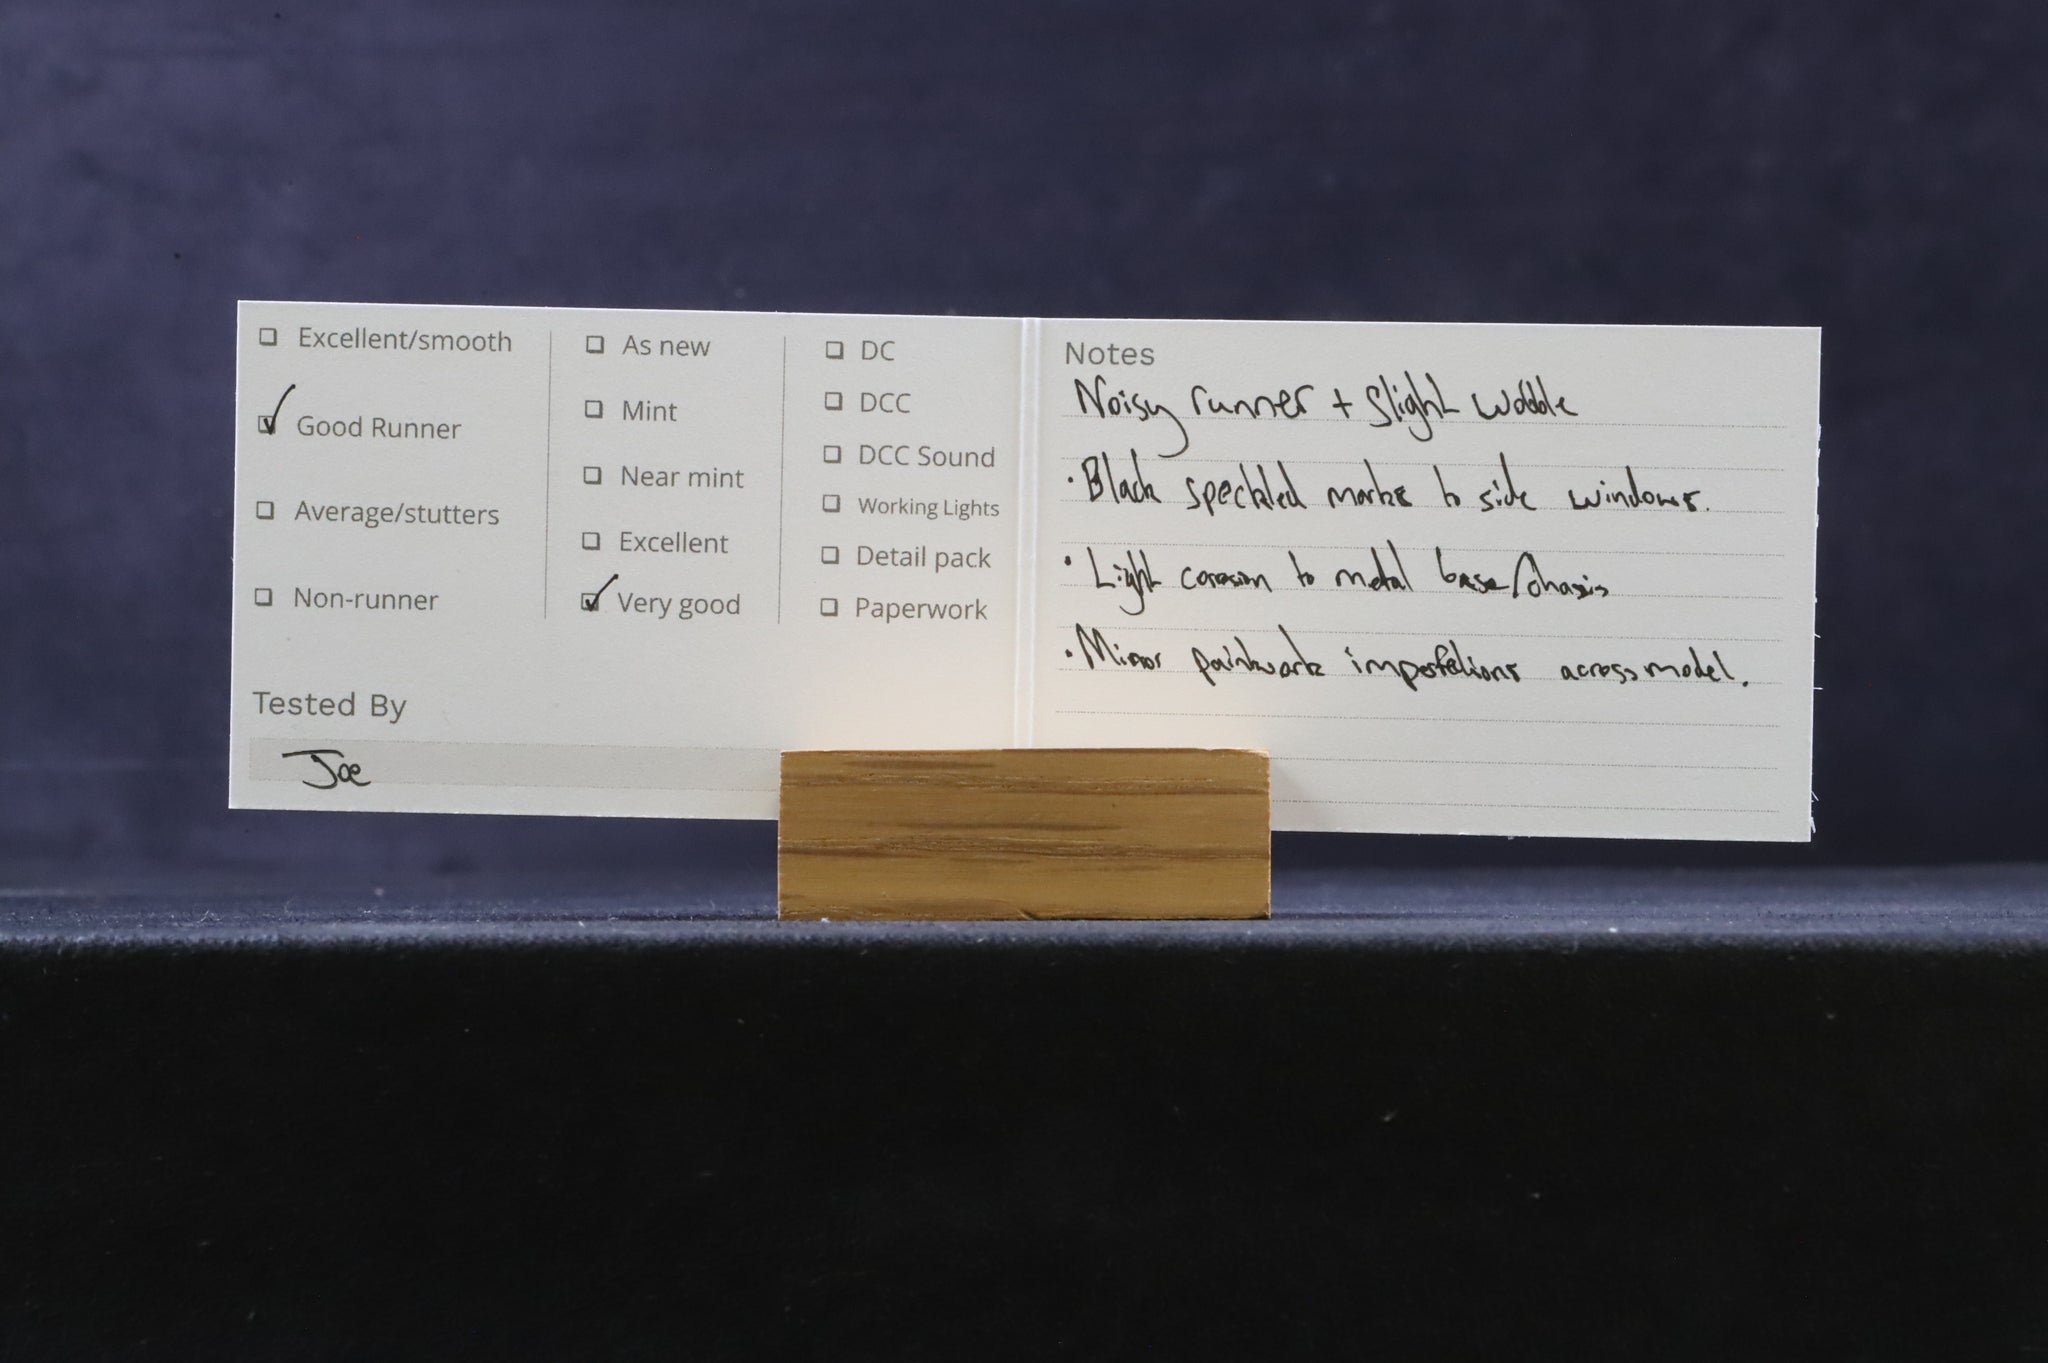 Excellent/smooth
Good Runner
Average/stutters
Non-runner
As new
Mint
Near mint
Excellent
Very good
DC
DCC
DCC Sound
Working Lights
Detail pack
Paperwork
Tested By
Joe
Notes
Noisy runner + slight wobble
· Black speckled marks to side windows.
· Light corosion to metal base/chasis
· Minor paintwork imperfetions across model.